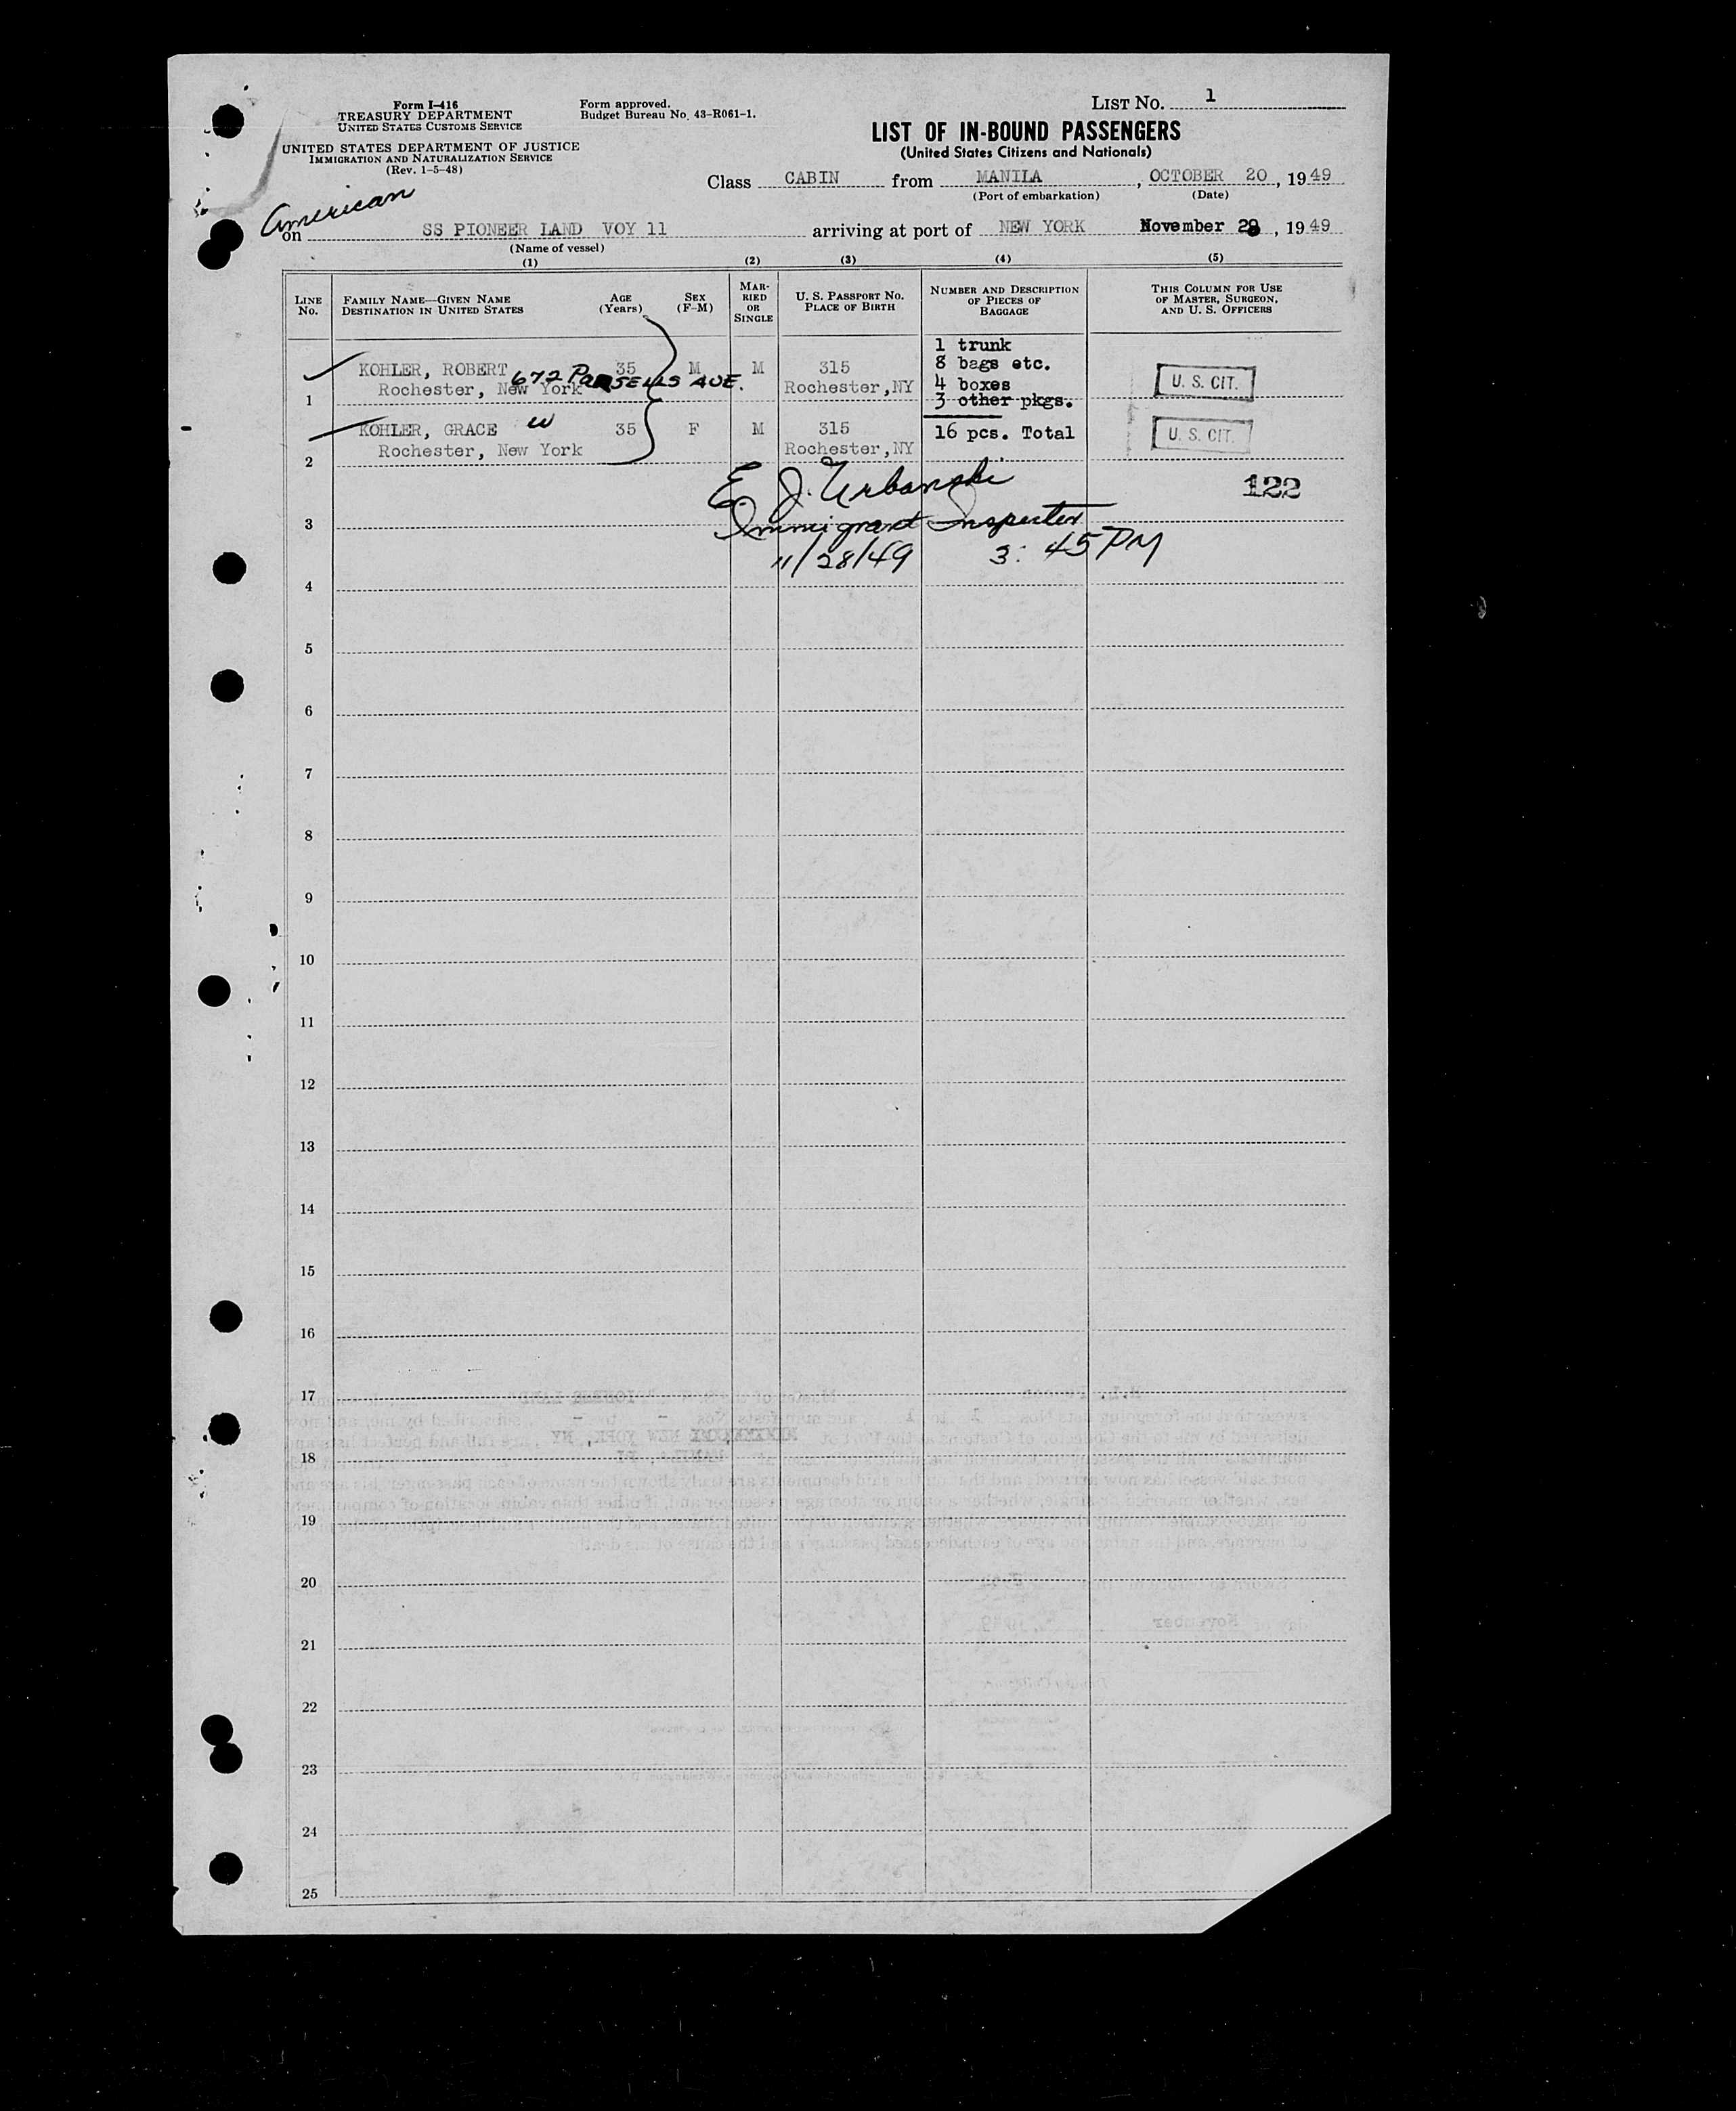 Form I-416
TREASURY DEPARTMENT
UNITED STATES CUSTOMS SERVICE
Form approved.
Budget Bureau No. 43-R061-1.
LIST NO. 1
UNITED STATES DEPARTMENT OF JUSTICE
IMMIGRATION AND NATURALIZATION SERVICE
(Rev. 1-5-48)
LIST OF IN-BOUND PASSENGERS
(United States Citizens and Nationals)
Class CABIN from MANILA, OCTOBER 20, 1949
(Port of embarkation) (Date)
American
on SS PIONEER LAND VOY 11 arriving at port of NEW YORK November 28, 1949
(Name of vessel)
(1) (2) (3) (4) (5)
LINE No.
FAMILY NAME—GIVEN NAME
DESTINATION IN UNITED STATES
AGE (Years)
SEX (F-M)
MARRIED OR SINGLE
U. S. PASSPORT NO.
PLACE OF BIRTH
NUMBER AND DESCRIPTION OF PIECES OF BAGGAGE
THIS COLUMN FOR USE OF MASTER, SURGEON, AND U. S. OFFICERS
1 KOHLER, ROBERT 35 M M 315
672 PARSELLS AVE.
Rochester, New York Rochester, NY
1 trunk
8 bags etc.
4 boxes
3 other pkgs.
U. S. CIT.
2 KOHLER, GRACE W 35 F M 315 16 pcs. Total
Rochester, New York Rochester, NY
U. S. CIT.
122
E. J. Urbanski
Immigrant Inspector
11/28/49 3:45 PM
3
4
5
6
7
8
9
10
11
12
13
14
15
16
17
18
19
20
21
22
23
24
25